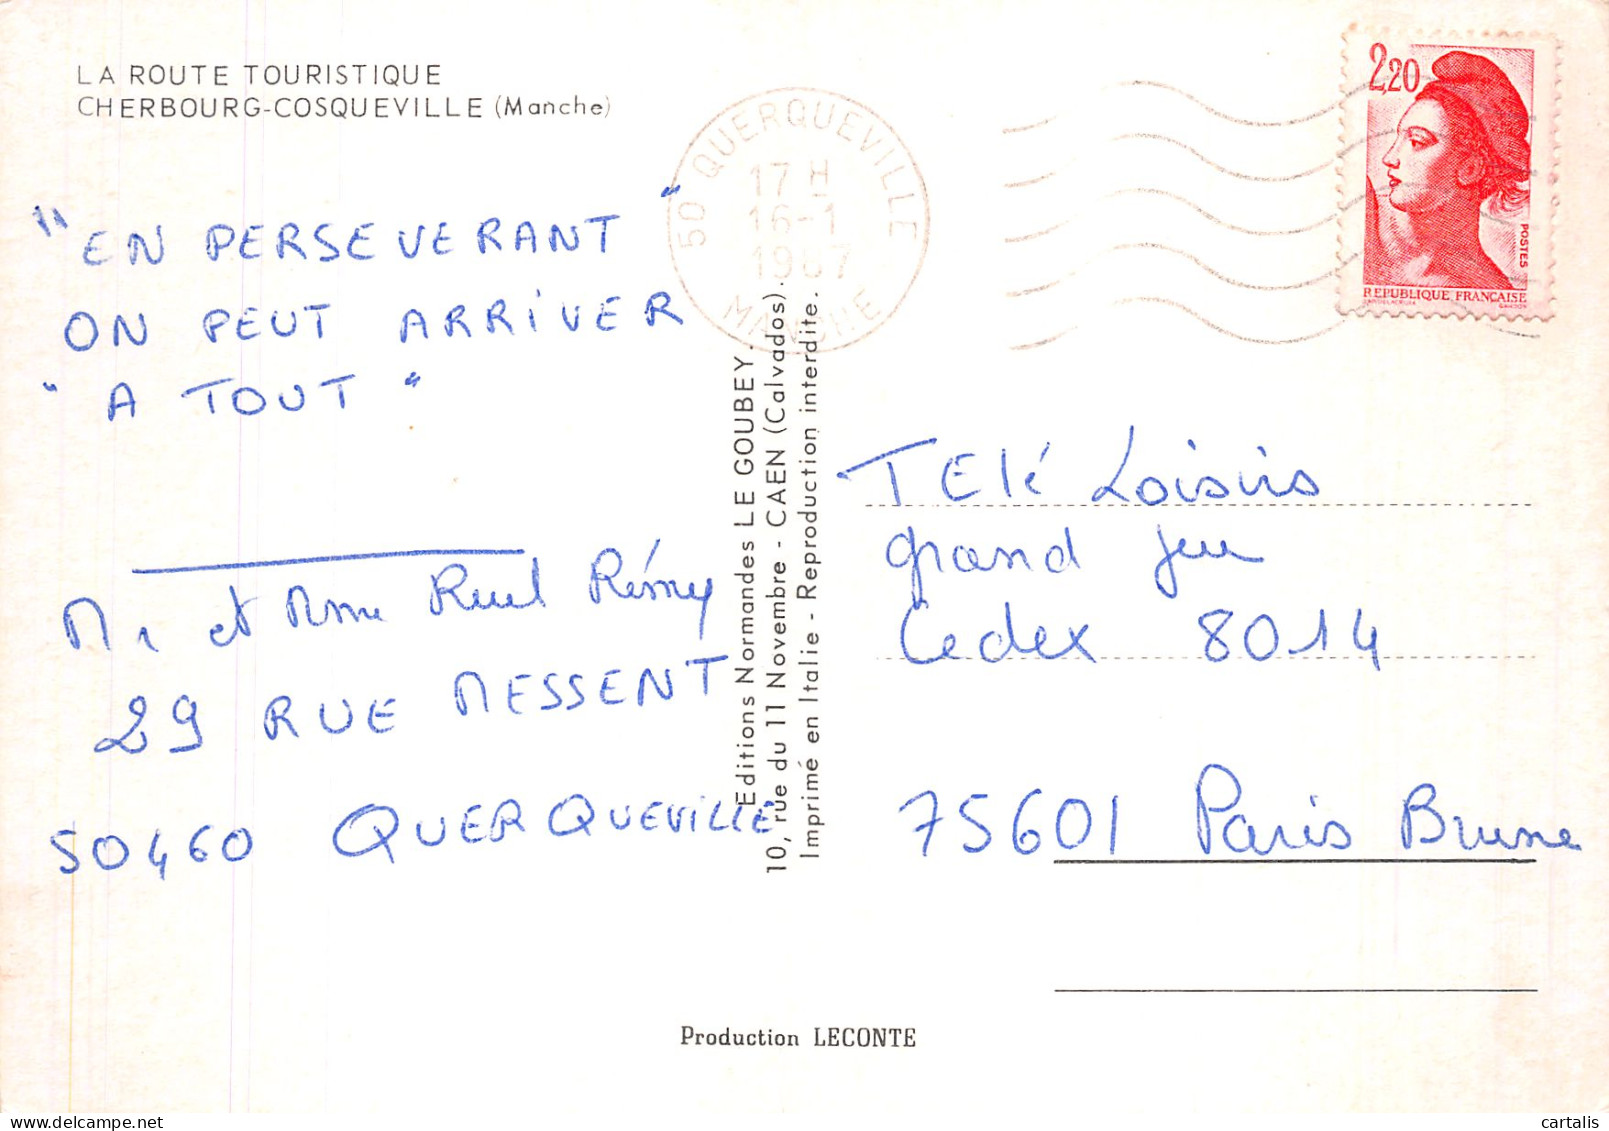 LA ROUTE TOURISTIQUE
CHERBOURG-COSQUEVILLE (Manche)
"EN PERSEVERANT"
ON PEUT ARRIVER
"A TOUT"
Mr et Mme Ruel Rémy
29 RUE MESSENT
50460 QUERQUEVILLE
50 QUERQUEVILLE
17 H
16-1
1987
MANCHE
2,20
POSTES
REPUBLIQUE FRANÇAISE
Editions Normandes LE GOUBEY.
10, rue du 11 Novembre - CAEN (Calvados).
Imprimé en Italie - Reproduction interdite.
TELÉ Loisirs
grand jeu
Cedex 8014
75601 Paris Brune
Production LECONTE
cartalis